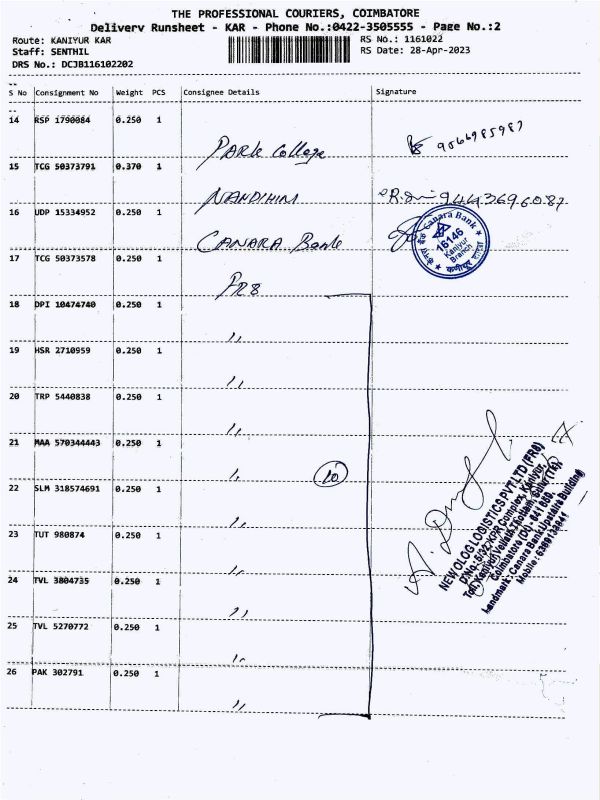 THE PROFESSIONAL COURIERS, COIMBATORE
Delivery Runsheet - KAR - Phone No.:0422-3505555 - Page No.:2
Route: KANIYUR KAR
RS No.: 1161022
Staff: SENTHIL
RS Date: 28-Apr-2023
DRS No.: DCJB116102202
S No Consignment No Weight PCS Consignee Details Signature
14 RSP 1790084 0.250 1
PARK College 9566985987
15 TCG 50373791 0.370 1
NANDHINI 9443696087
16 UDP 15334952 0.250 1
CANARA Bank
Canara Bank
15146
Kaniyur
Branch
17 TCG 50373578 0.250 1
FR8
18 DPI 10474740 0.250 1
"
19 HSR 2710959 0.250 1
"
20 TRP 5440838 0.250 1
"
21 MAA 570344443 0.250 1
" 10
22 SLM 318574691 0.250 1
"
23 TUT 980874 0.250 1
"
24 TVL 3804735 0.250 1
"
25 TVL 5270772 0.250 1
"
26 PAK 302791 0.250 1
"
NEWOLOG LOGISTICS PVT LTD (FR8)
D.No: 5/2, KPR Complex, Kaniyur,
Coimbatore (Dt)- 641 659.
Landmark: Canara Bank Upstairs Building